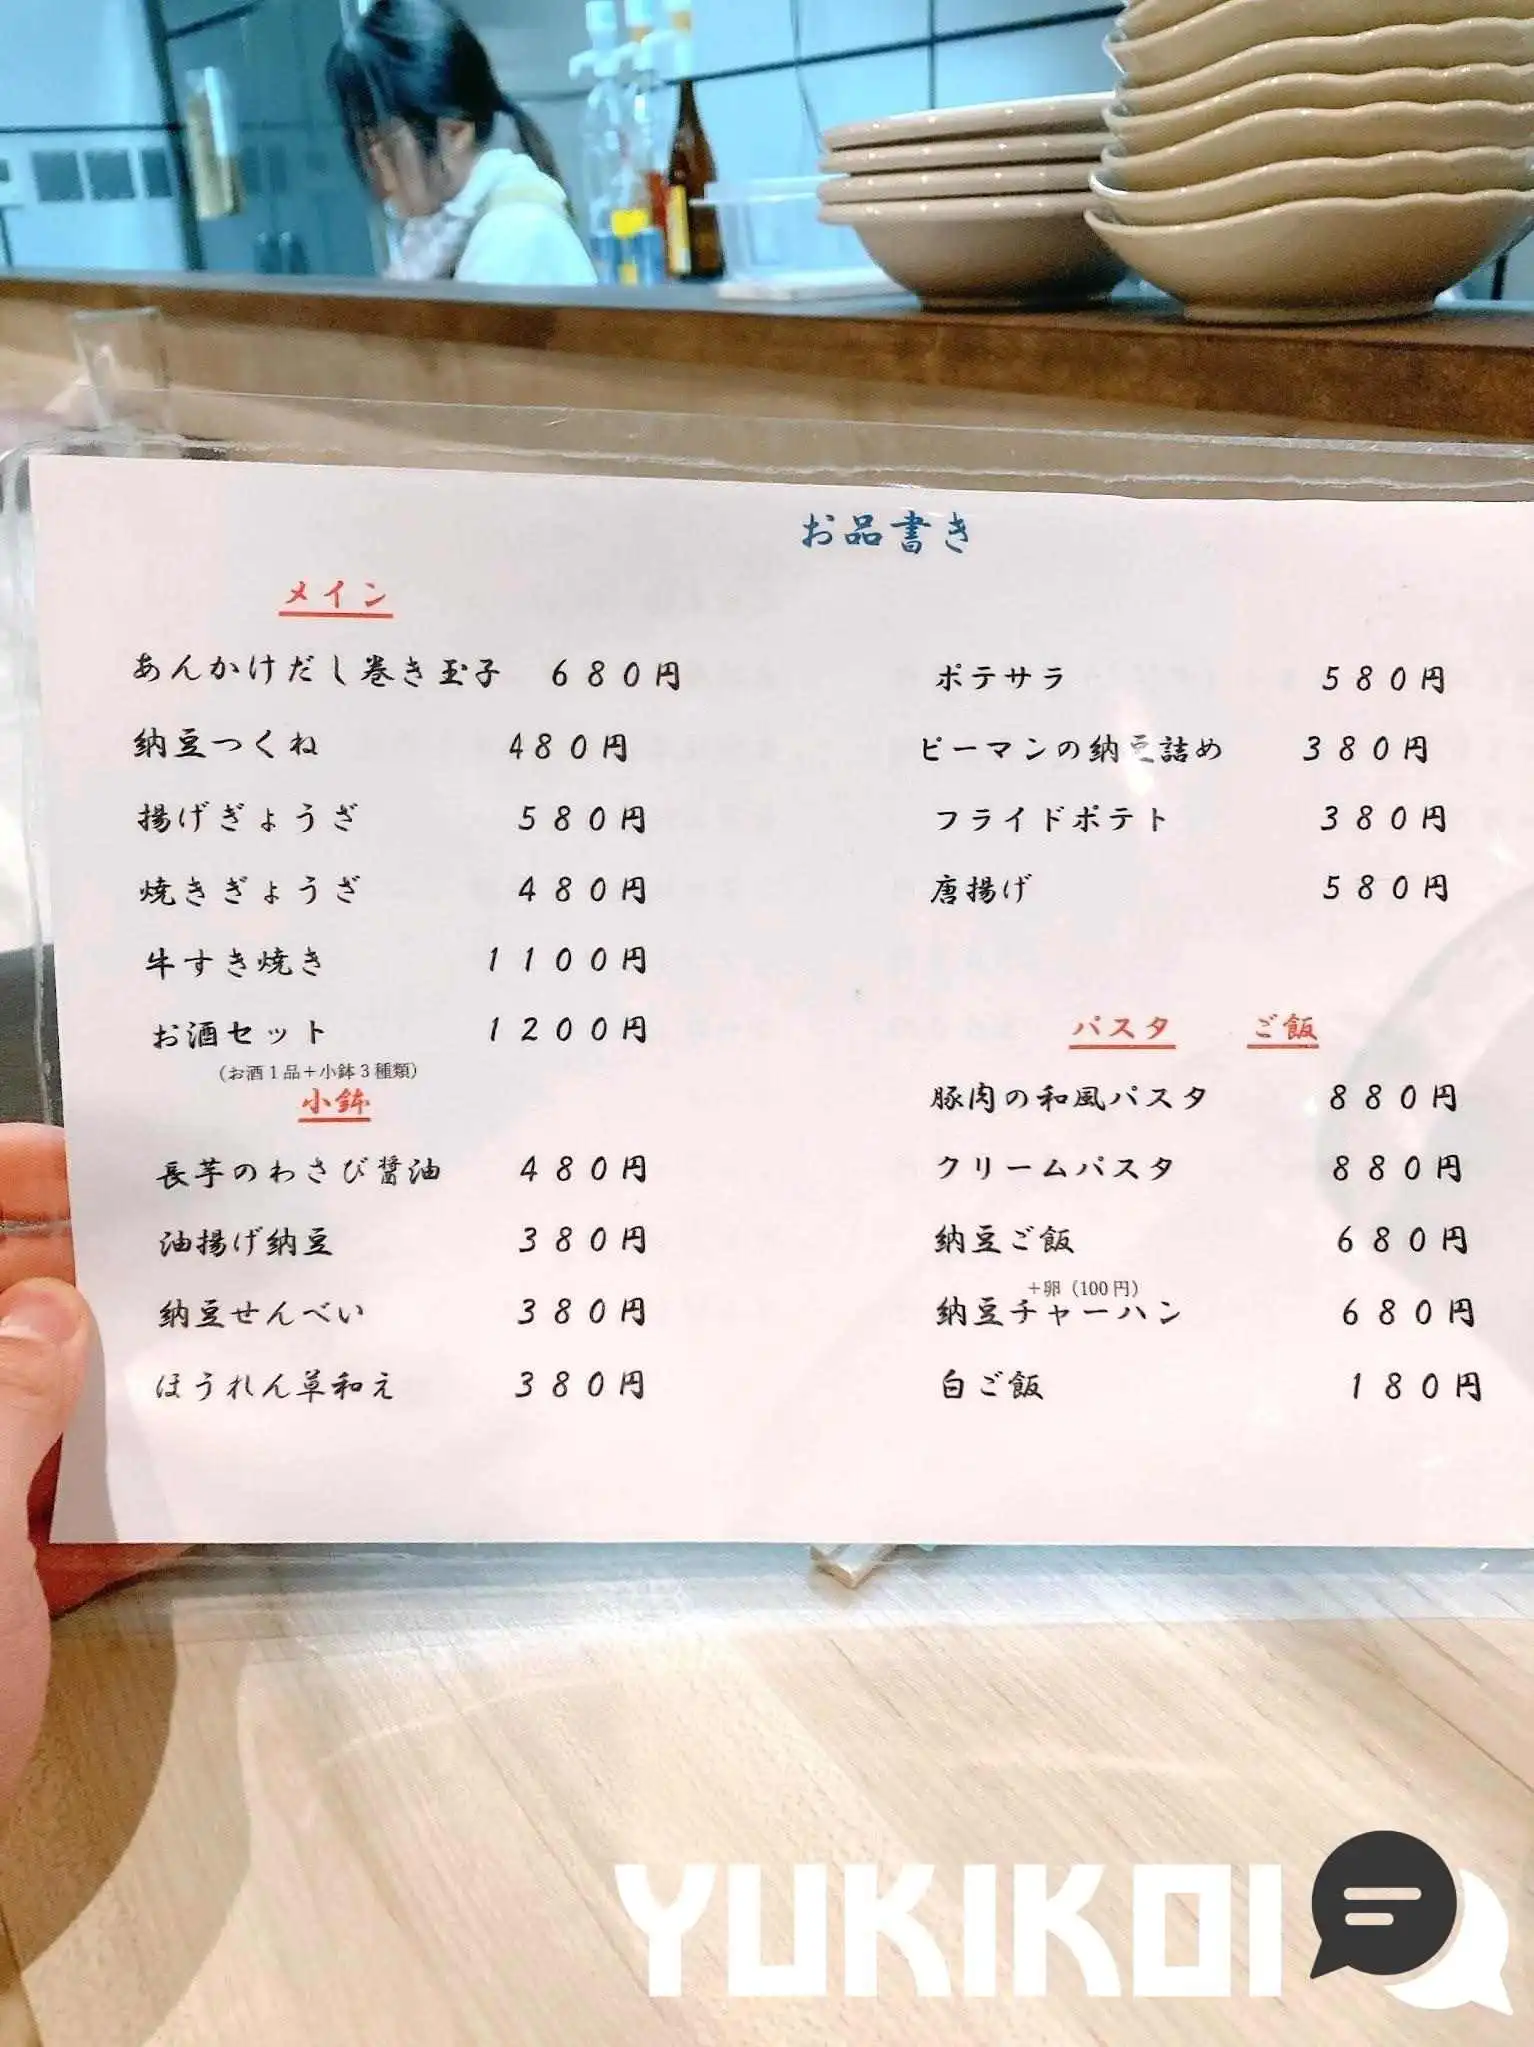 お品書き
メイン
あんかけだし巻き玉子 680円
納豆つくね 480円
揚げぎょうざ 580円
焼きぎょうざ 480円
牛すき焼き 1100円
お酒セット 1200円
（お酒1品＋小鉢3種類）
小鉢
長芋のわさび醤油 480円
油揚げ納豆 380円
納豆せんべい 380円
ほうれん草和え 380円
ポテサラ 580円
ピーマンの納豆詰め 380円
フライドポテト 380円
唐揚げ 580円
パスタ ご飯
豚肉の和風パスタ 880円
クリームパスタ 880円
納豆ご飯 680円
＋卵（100円）
納豆チャーハン 680円
白ご飯 180円
YUKIKOI